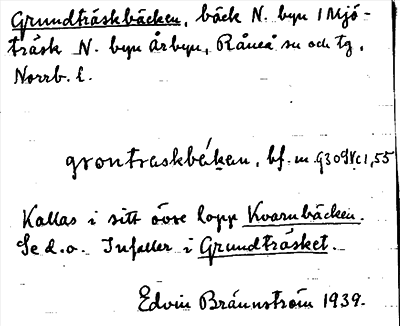 Grundträskbäcken, bäck N. byn i Mjö-
träsk N. byn Årbyn, Råneå sn och tg,
Norrb. l.
grontraskbäken, bf. m
Kallas i sitt övre lopp Kvarnbäcken.
Se d.o. Infaller i Grundträsket.
Edvin Brännström 1939.